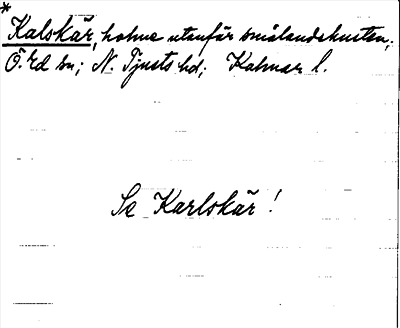 *
Kalskär, holme utanför smålandskusten;
Ö. Ed sn; N. Tjusts hd; Kalmar l.
Se Karlskär!